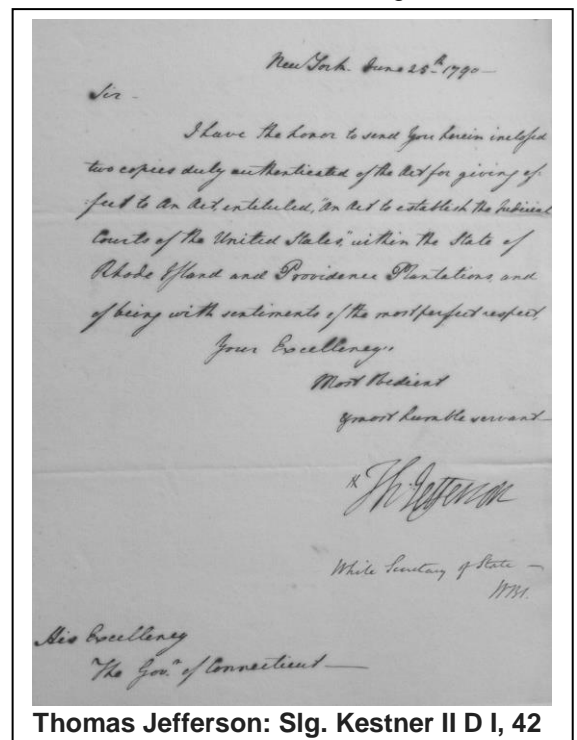 New York June 25th 1790—
Sir—
I have the honor to send you herein inclosed
two copies duly authenticated of the Act for giving ef-
:fect to an Act intituled, "an Act to establish the Judicial
Courts of the United States," within the State of
Rhode Island and Providence Plantations, and
of being with sentiments of the most perfect respect,
Your Excellency's
Most Obedient
& most humble servant—
Th: Jefferson
While Secretary of State—
His Excellency
The Gov.r of Connecticut—
Thomas Jefferson: Slg. Kestner II D I, 42